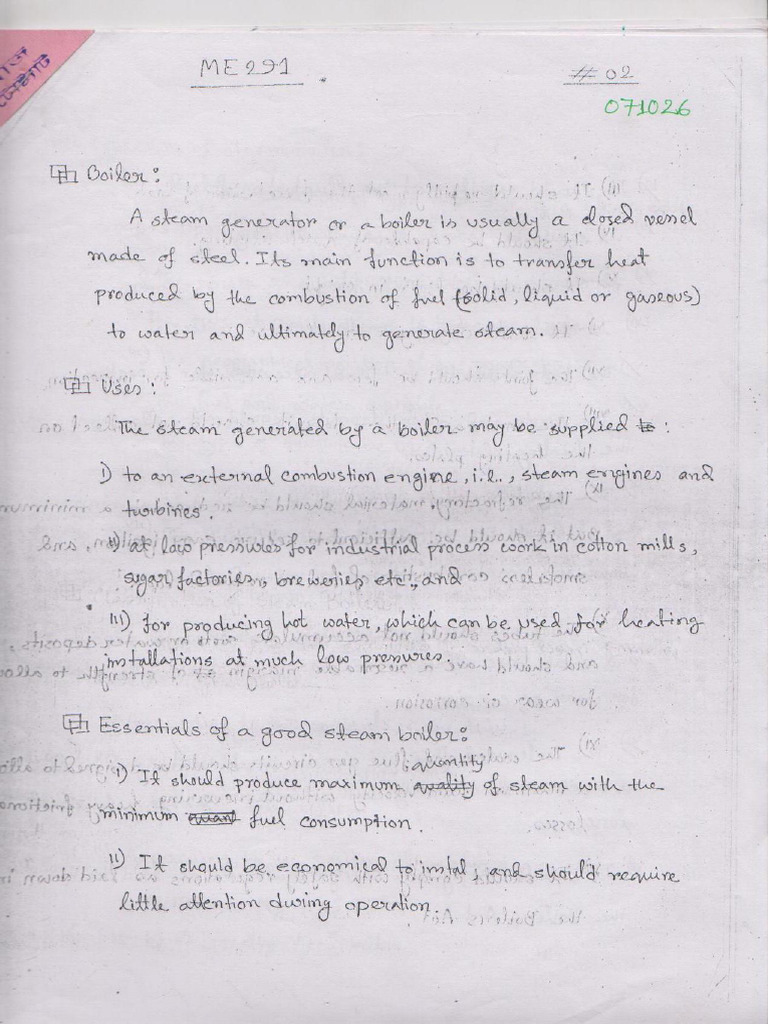 ME291 # 02
071026
Boiler:
A steam generator or a boiler is usually a closed vessel
made of steel. Its main function is to transfer heat
produced by the combustion of fuel (solid, liquid or gaseous)
to water and ultimately to generate steam.
Uses:
The steam generated by a boiler may be supplied to:
i) to an external combustion engine, i.e., steam engines and
turbines.
ii) at low pressures for industrial process work in cotton mills,
sugar factories, breweries, etc., and
iii) for producing hot water, which can be used for heating
installations at much low pressures.
Essentials of a good steam boiler:
quantity
i) It should produce maximum quality of steam with the
minimum quan fuel consumption.
ii) It should be economical to instal, and should require
little attention during operation.